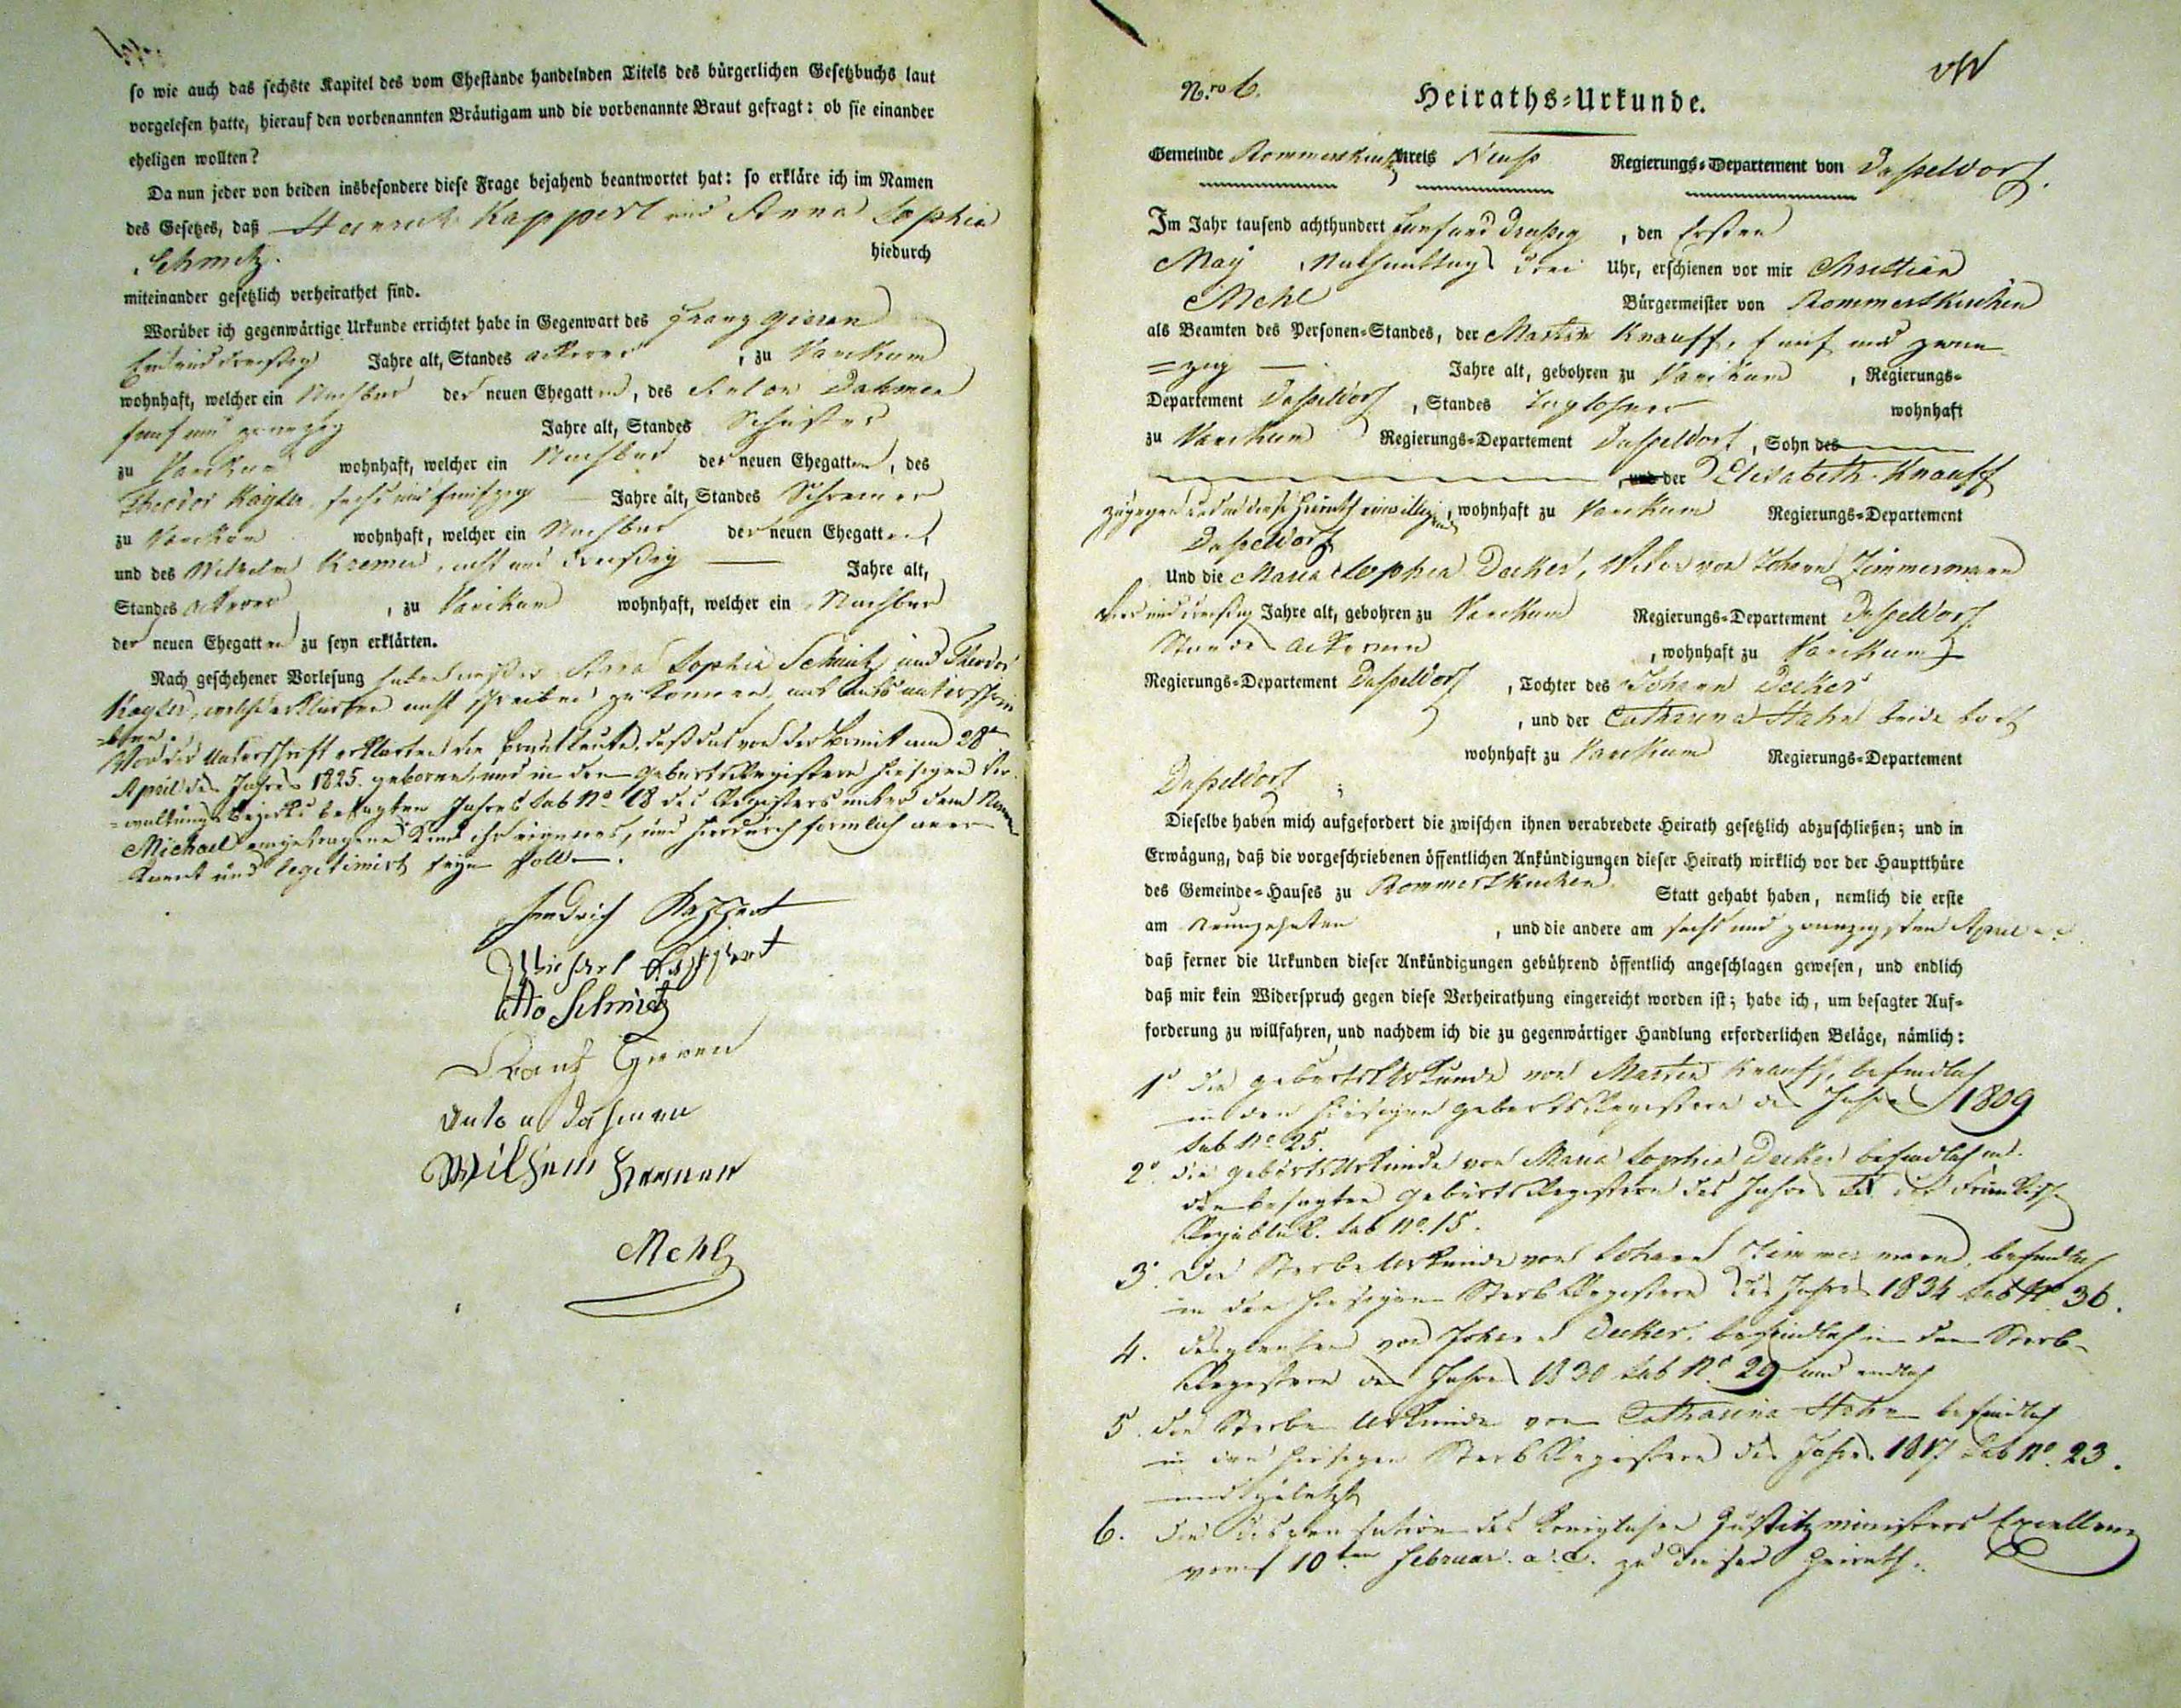 so wie auch das sechste Kapitel des vom Ehestande handelnden Titels des bürgerlichen Gesetzbuchs laut
vorgelesen hatte, hierauf den vorbenannten Bräutigam und die vorbenannte Braut gefragt: ob sie einander
eheligen wollten?
Da nun jeder von beiden insbesondere diese Frage bejahend beantwortet hat: so erkläre ich im Namen
des Gesetzes, daß Heinrich Kappert und Anna Sophia
Schmitz. hiedurch
miteinander gesetzlich verheirathet sind.
Worüber ich gegenwärtige Urkunde errichtet habe in Gegenwart des Franz Gieren
Jahre alt, Standes Ackerer, zu Vanikum
wohnhaft, welcher ein Nachbar der neuen Ehegatten, des Anton Dahmen
fünf und zwanzig Jahre alt, Standes Schuster
zu Vanikum wohnhaft, welcher ein Nachbar der neuen Ehegatten, des
Theodor Kayser, sechs und fünfzig Jahre alt, Standes Schreiner
zu Vanikum wohnhaft, welcher ein Nachbar der neuen Ehegatten,
und des Wilhelm Kremer, acht und dreißig Jahre alt,
Standes Ackerer, zu Vanikum wohnhaft, welcher ein Nachbar
der neuen Ehegatten zu seyn erklärten.
Nach geschehener Vorlesung Anna Sophia Schmitz und Theodor
Kayser, welche erklärten nicht schreiben zu können, mit uns unterschrie-
=ben.
Vor der Unterschrift erklärten die Brautleute, daß das von der Braut am 28n
April des Jahres 1825 geborne, und in den Geburts Registern hiesigen Ver-
=waltungs Bezirks besagten Jahres sub No. 18 des Registers unter dem Namen
Michael eingetragene Kind ihr eigenes, und hierdurch förmlich aner-
kannt und legitimirt seyn solle.
Hendrich Kappert
Michael Kappert
Otto Schmitz
Franz Gieren
Anton Dahmen
Wilhelm Kremer
Mehl
N.ro 6. Heiraths-Urkunde.
Gemeinde Rommerskirchen Kreis Neuss Regierungs-Departement von Dusseldorf.
Im Jahr tausend achthundert fünf und dreißig, den Ersten
May Nachmittags drei Uhr, erschienen vor mir Christian
Mehl Bürgermeister von Rommerskirchen
als Beamten des Personen-Standes, der Martin Knauff, fünf und zwan-
=zig Jahre alt, gebohren zu Vanikum, Regierungs-
Departement Dusseldorf, Standes Taglöhner wohnhaft
zu Vanikum Regierungs-Departement Dusseldorf, Sohn des
, und der Elisabeth Knauff
zugegen und in diese Heirath einwilligend, wohnhaft zu Vanikum Regierungs-Departement
Dusseldorf
Und die Maria Sophia Decker, Witwe von Johann Zimmermann
Jahre alt, gebohren zu Vanikum Regierungs-Departement Dusseldorf
Standes Ackerinn, wohnhaft zu Vanikum
Regierungs-Departement Dusseldorf, Tochter des Johann Decker
, und der Catharina Hahn beide todt
wohnhaft zu Vanikum Regierungs-Departement
Dusseldorf;
Dieselbe haben mich aufgefordert die zwischen ihnen verabredete Heirath gesetzlich abzuschließen; und in
Erwägung, daß die vorgeschriebenen öffentlichen Ankündigungen dieser Heirath wirklich vor der Hauptthüre
des Gemeinde-Hauses zu Rommerskirchen Statt gehabt haben, nemlich die erste
am neunzehnten, und die andere am sechs und zwanzigsten April a. c.
daß ferner die Urkunden dieser Ankündigungen gebührend öffentlich angeschlagen gewesen, und endlich
daß mir kein Widerspruch gegen diese Verheirathung eingereicht worden ist; habe ich, um besagter Auf-
forderung zu willfahren, und nachdem ich die zu gegenwärtiger Handlung erforderlichen Beläge, nämlich:
1o die Geburts Urkunde von Martin Knauff, befindlich
in den hiesigen Geburts Registern des Jahres 1809
sub No 25.
2o. die Geburts Urkunde von Maria Sophia Decker befindlich in
den besagten Geburts Registern des Jahres der Fränkisch
Republick sub No. 15.
3. Die Sterbe Urkunde von Johann Zimmermann, befindlich
in den hiesigen Sterb Registern des Jahres 1834 sub No. 36.
4. desgleichen von Johann Decker, befindlich in den Sterb-
Registern des Jahres 1830 sub No. 29 und endlich
5. die Sterbe Urkunde von Catharina Hahn befindlich
in den hiesigen Sterb Registern des Jahres 1817 sub No. 23.
und zuletzt
6. die Dispensation des Königlichen Justitzministers Excellenz
vom 10ten Februar a. c. zu dieser Heirath.